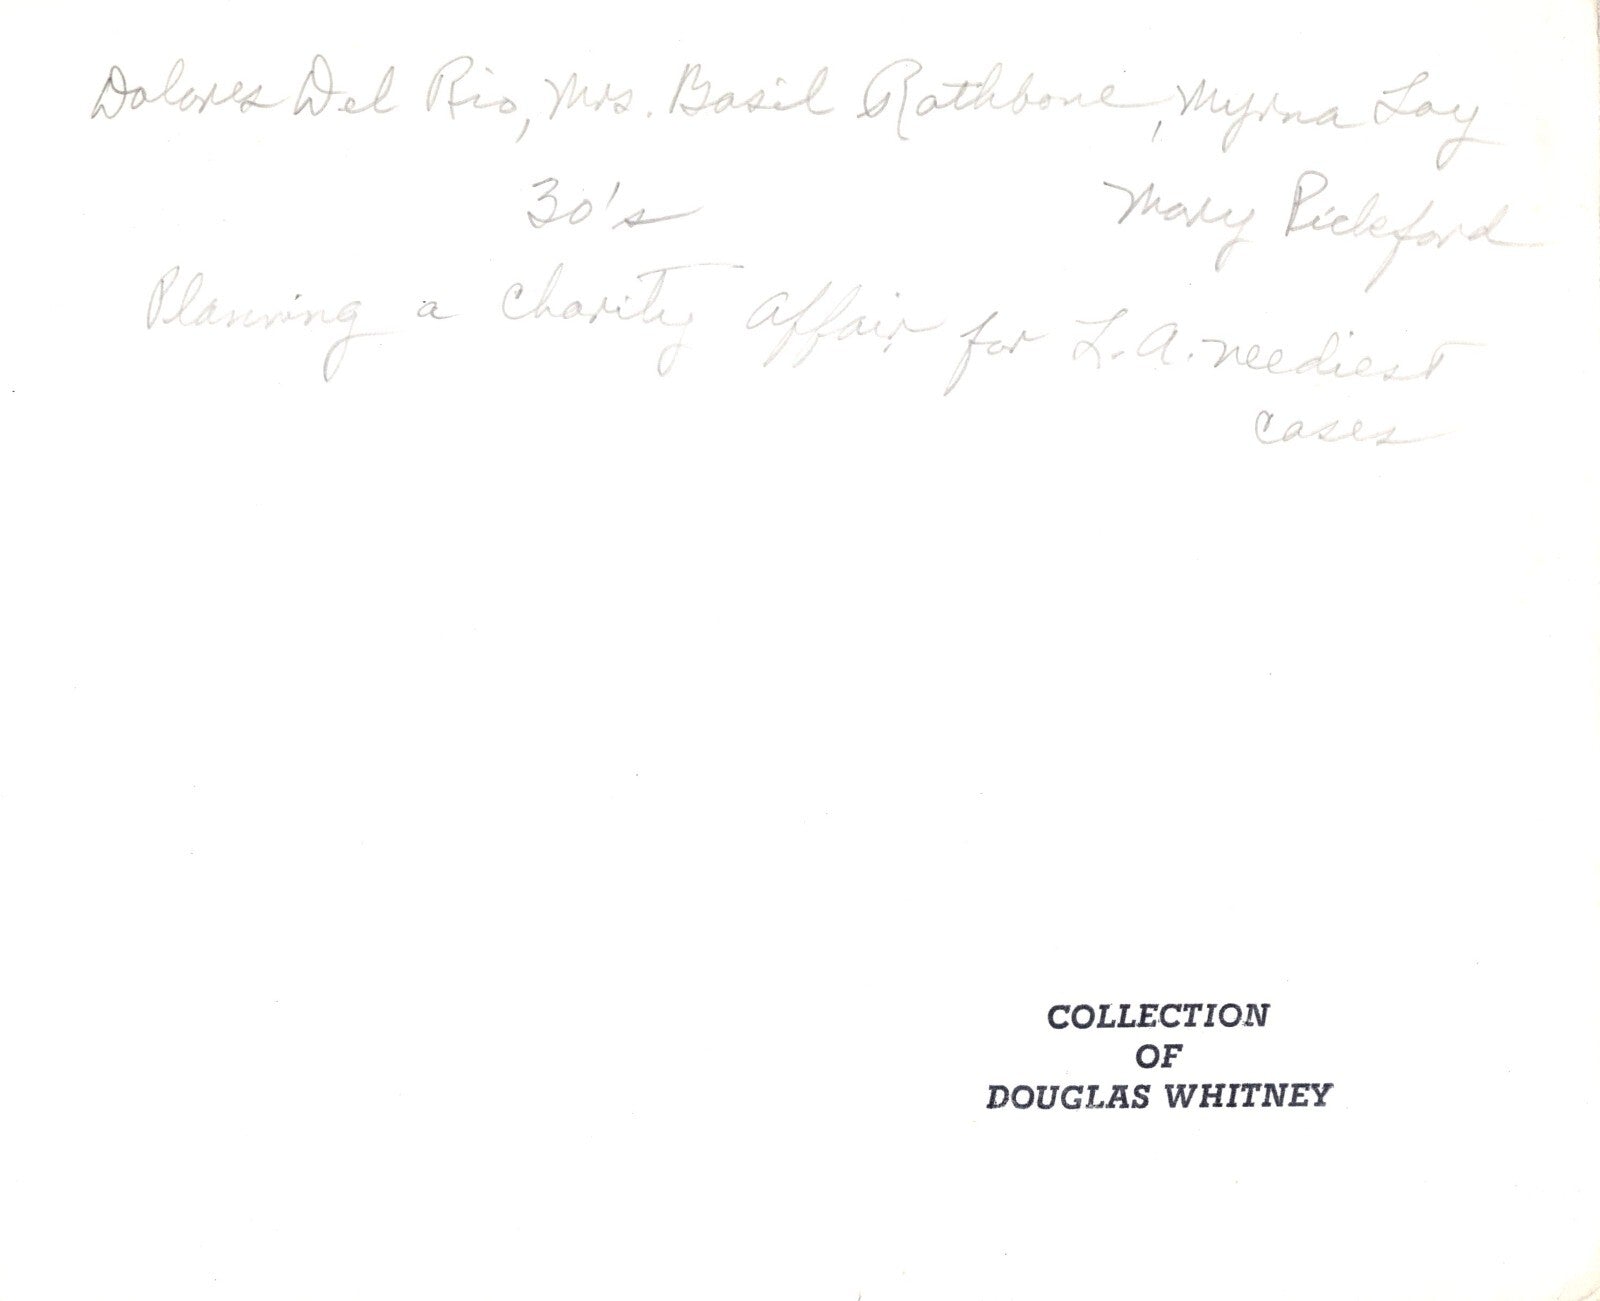 Dolores Del Rio, Mrs. Basil Rathbone, Myrna Loy
30's Mary Pickford
Planning a Charity Affair for L.A. neediest
cases
COLLECTION
OF
DOUGLAS WHITNEY